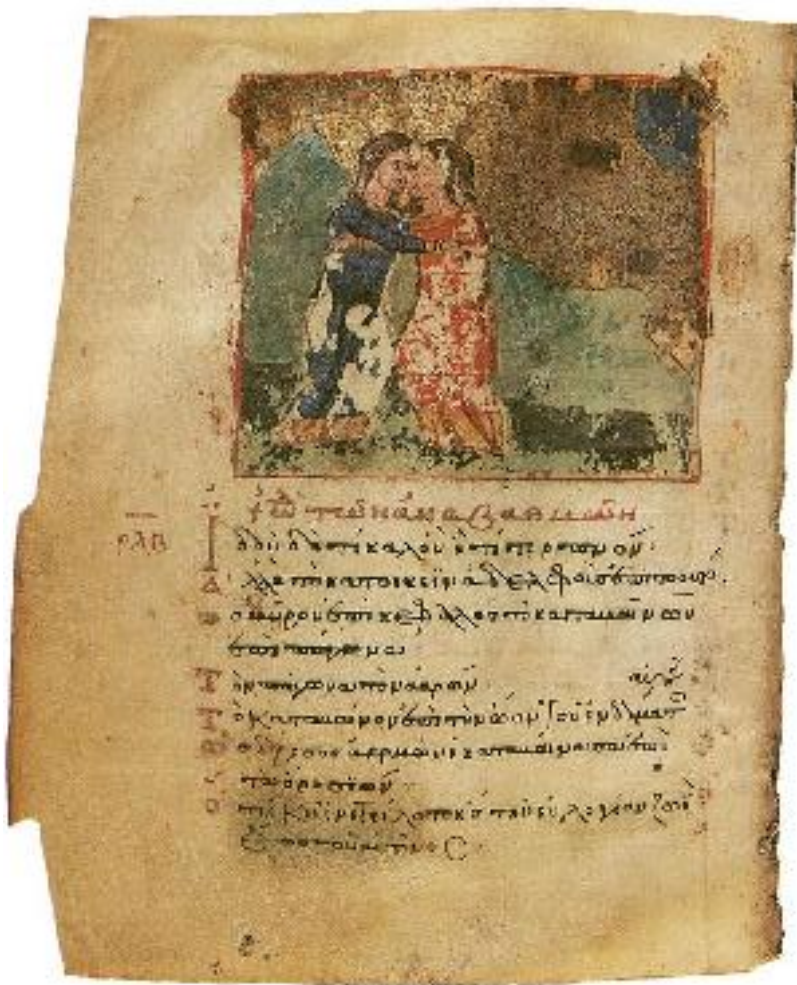 ᾠδὴ τῶν ἀναβαθμῶν
ρλβ
Ἰδοὺ δὴ τί καλὸν ἢ τί τερπνὸν
ἀλλ' ἢ τὸ κατοικεῖν ἀδελφοὺς ἐπὶ τὸ αὐτό
ὡς μύρον ἐπὶ κεφαλῆς τὸ καταβαῖνον
ἐπὶ πώγωνα
τὸν πώγωνα τὸν ἀαρών
τὸ καταβαῖνον ἐπὶ τὴν ὤαν τοῦ ἐνδύματος αὐτοῦ
ὡς δρόσος ἀερμὼν ἡ καταβαίνουσα ἐπὶ
τὰ ὄρη σιών
ὅτι ἐκεῖ ἐνετείλατο κς τὴν εὐλογίαν ζωὴν
ἕως τοῦ αἰῶνος